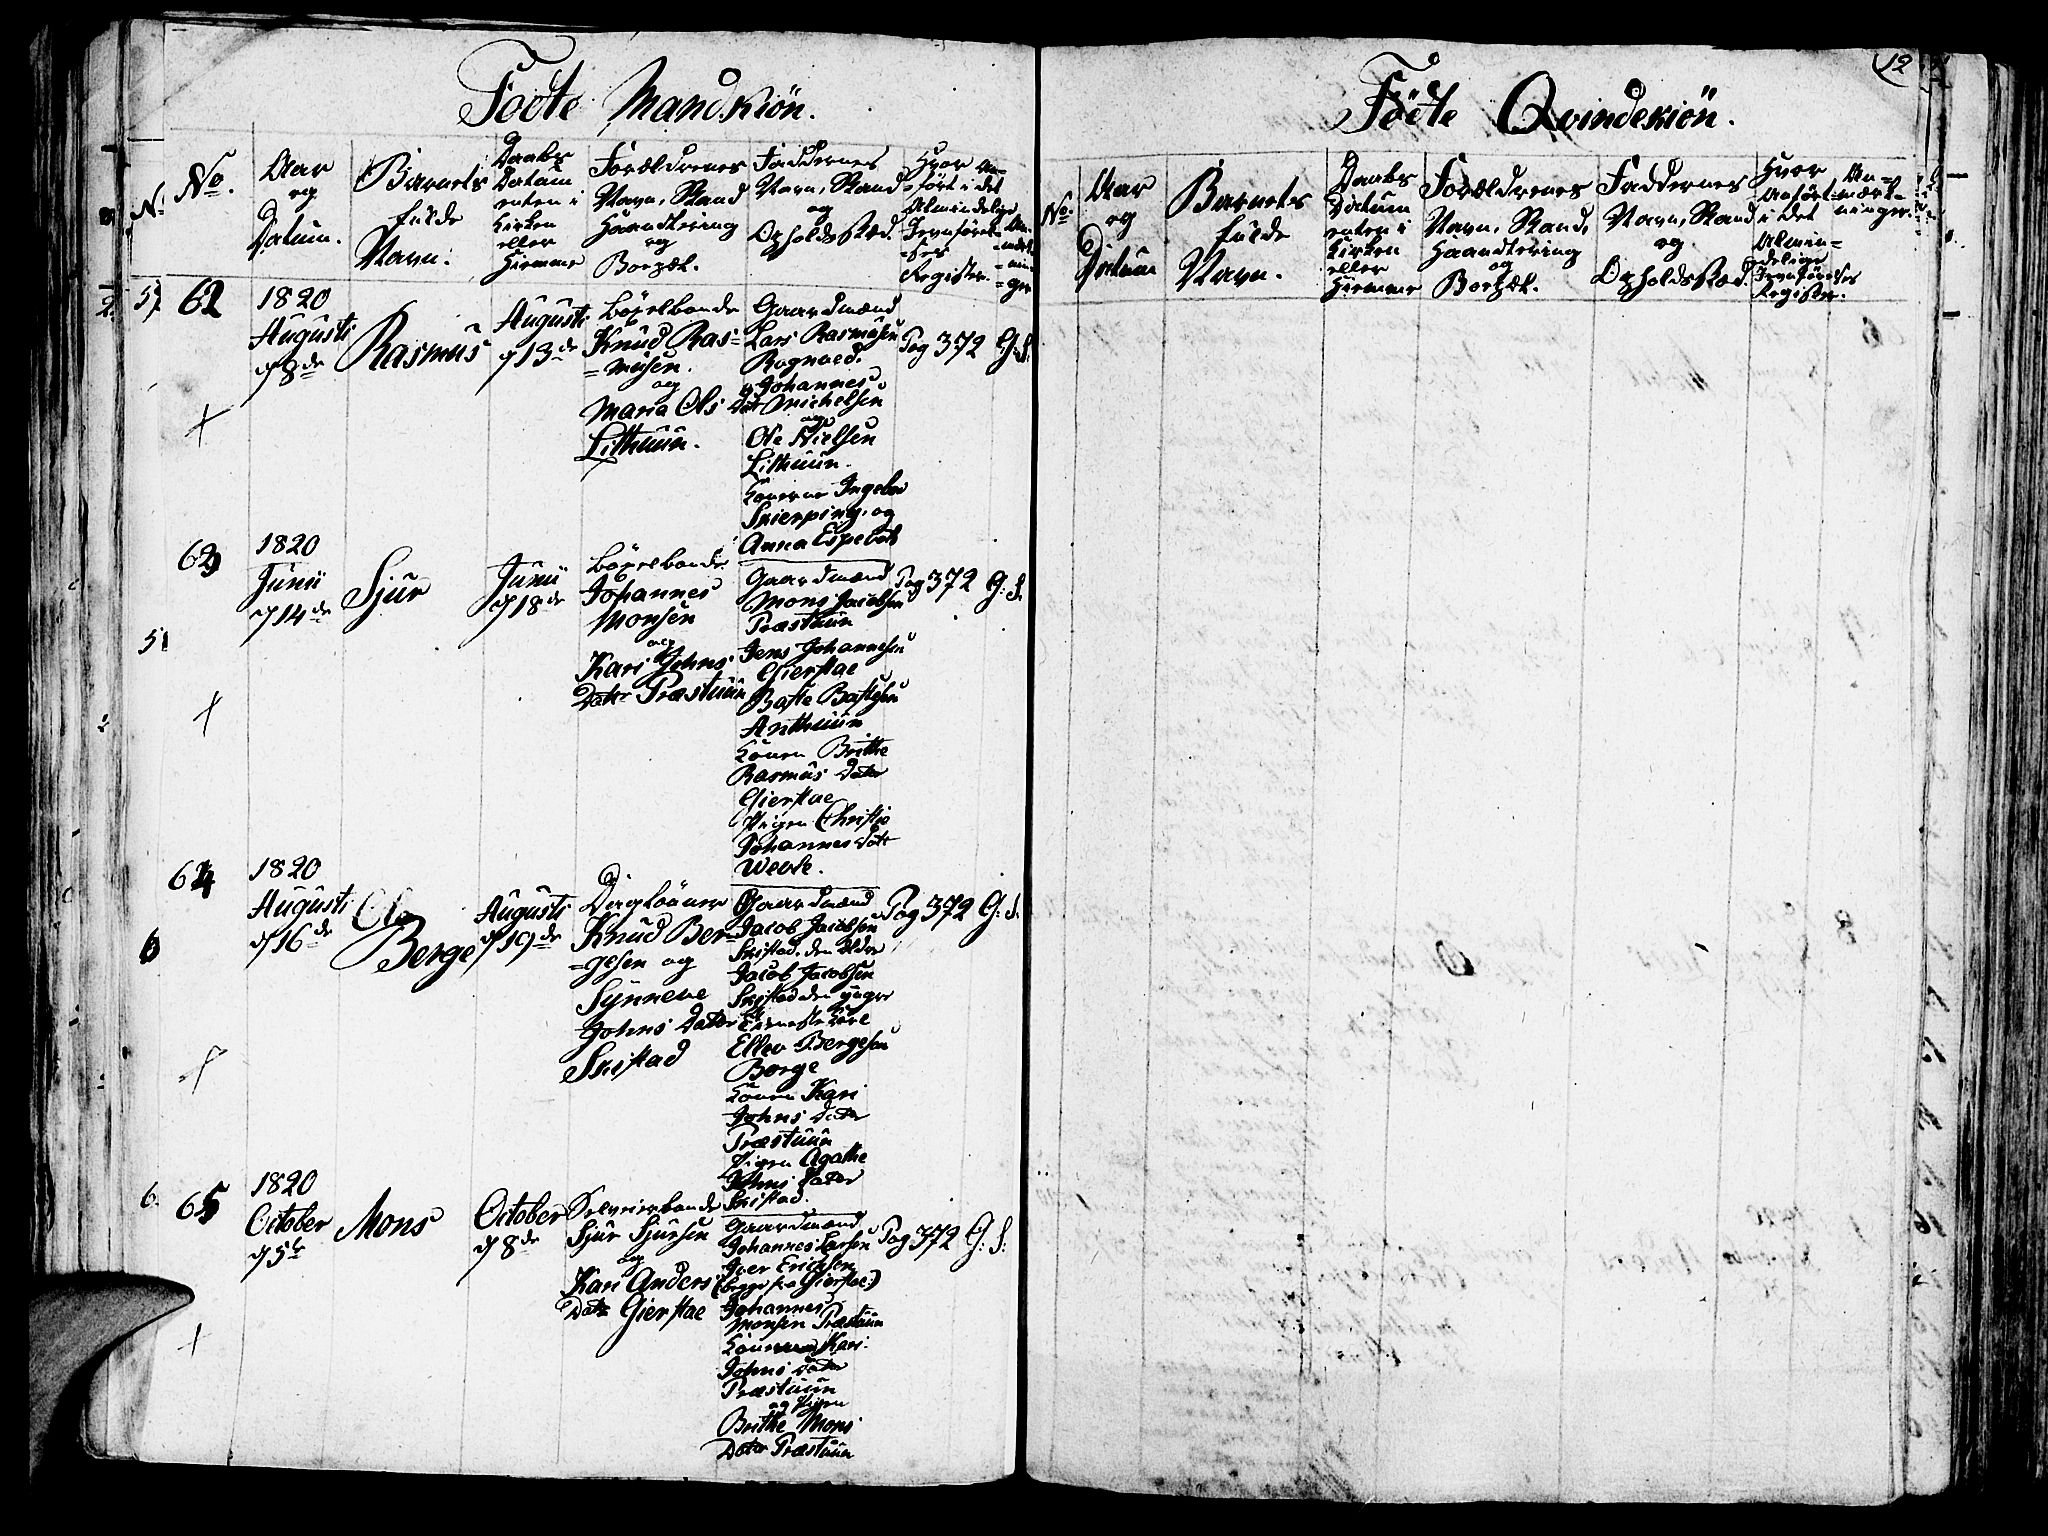 Födte Mandkiön.
No.
Aar
og
Datum.
Barnets
fulde
Navn.
Daabs
Datum
enten i
Kirken
eller
Hiemme
Forældrenes
Navn, Stand
Haandtering
og
Bopæl.
Faddernes
Navn, Stand
og
Opholdsstæd.
Hvor An-
ført i det
Almindelige
Jevnförel-
ses
Register.
62
1820
Augusti
d 8de
Rasmus
Augusti
d 13de
Knud Ras-
musen.
og
Maria Ols Datr
Lithuun.
Gaardmænd
Lars Rasmusen
Rognved.
Johannes
Michelsen
og
Ole Nielsen
Lithuun.
Konerne Ingebor
Skierping, og
Anna Espelats
Pag 372 G: S:
63
1820
Junii
d 14de
Sjur
Junii
d 18de
Johannes
Monsen
og
Kari Johns
Dater Præstuun
Gaardmænd
Mons Jacobsen
Præstuun
Jens Johannesen
Gierstae
Baste Bastesen
Anthuun
Konen Brithe
Rasmus Dater
Gierstae
Pigen Christie
Johannes Datr
Wevle.
Pag 372 G: S.
64
1820
Augusti
d 16de
Ole
Berge
Augusti
d 19de
Daglönner
Knud Ber-
gesen og
Synneve
Johns Dater
Skistad
Gaardmænd
Jacob Jacobsen
Skistad, den Ældre
Jacob Jacobsen
Skistad den yngre
Ellev Bergesen
Berge
Konen Kari
Johns Dater
Præstuun
Pigen Agathe
Johns Dater
Skistad.
Pag 372 G: S.
6.
65
1820
October
d 5te
Mons
October
d 8de
Selveierbonde
Sjur Sjursen
og
Kari Anders
Datr Gierstae
Gaardmænd
Johannes Larsen
Iver Erichsen
(begge fra Gierstae:)
Johannes
Monsen Præstuun
Konen Kari
Johns Dater
Præstuun
og Pigen
Brithe Mons
Dater Præstuun
Pag 372 G: S:
12
Födte Qvindekiön.
No.
Aar
og
Datum
Barnets
fulde
Navn.
Daabs
Datum
enten i
Kirken
eller
Hiemme
Forældrenes
Navn, Stand,
Haandtering
og
Bopæl.
Faddernes
Navn, Stand
og
Opholdsstæd.
Hvor
Anført
i det
Almin-
delige
Jevnförelses
Register.
An-
mærk-
ninger.